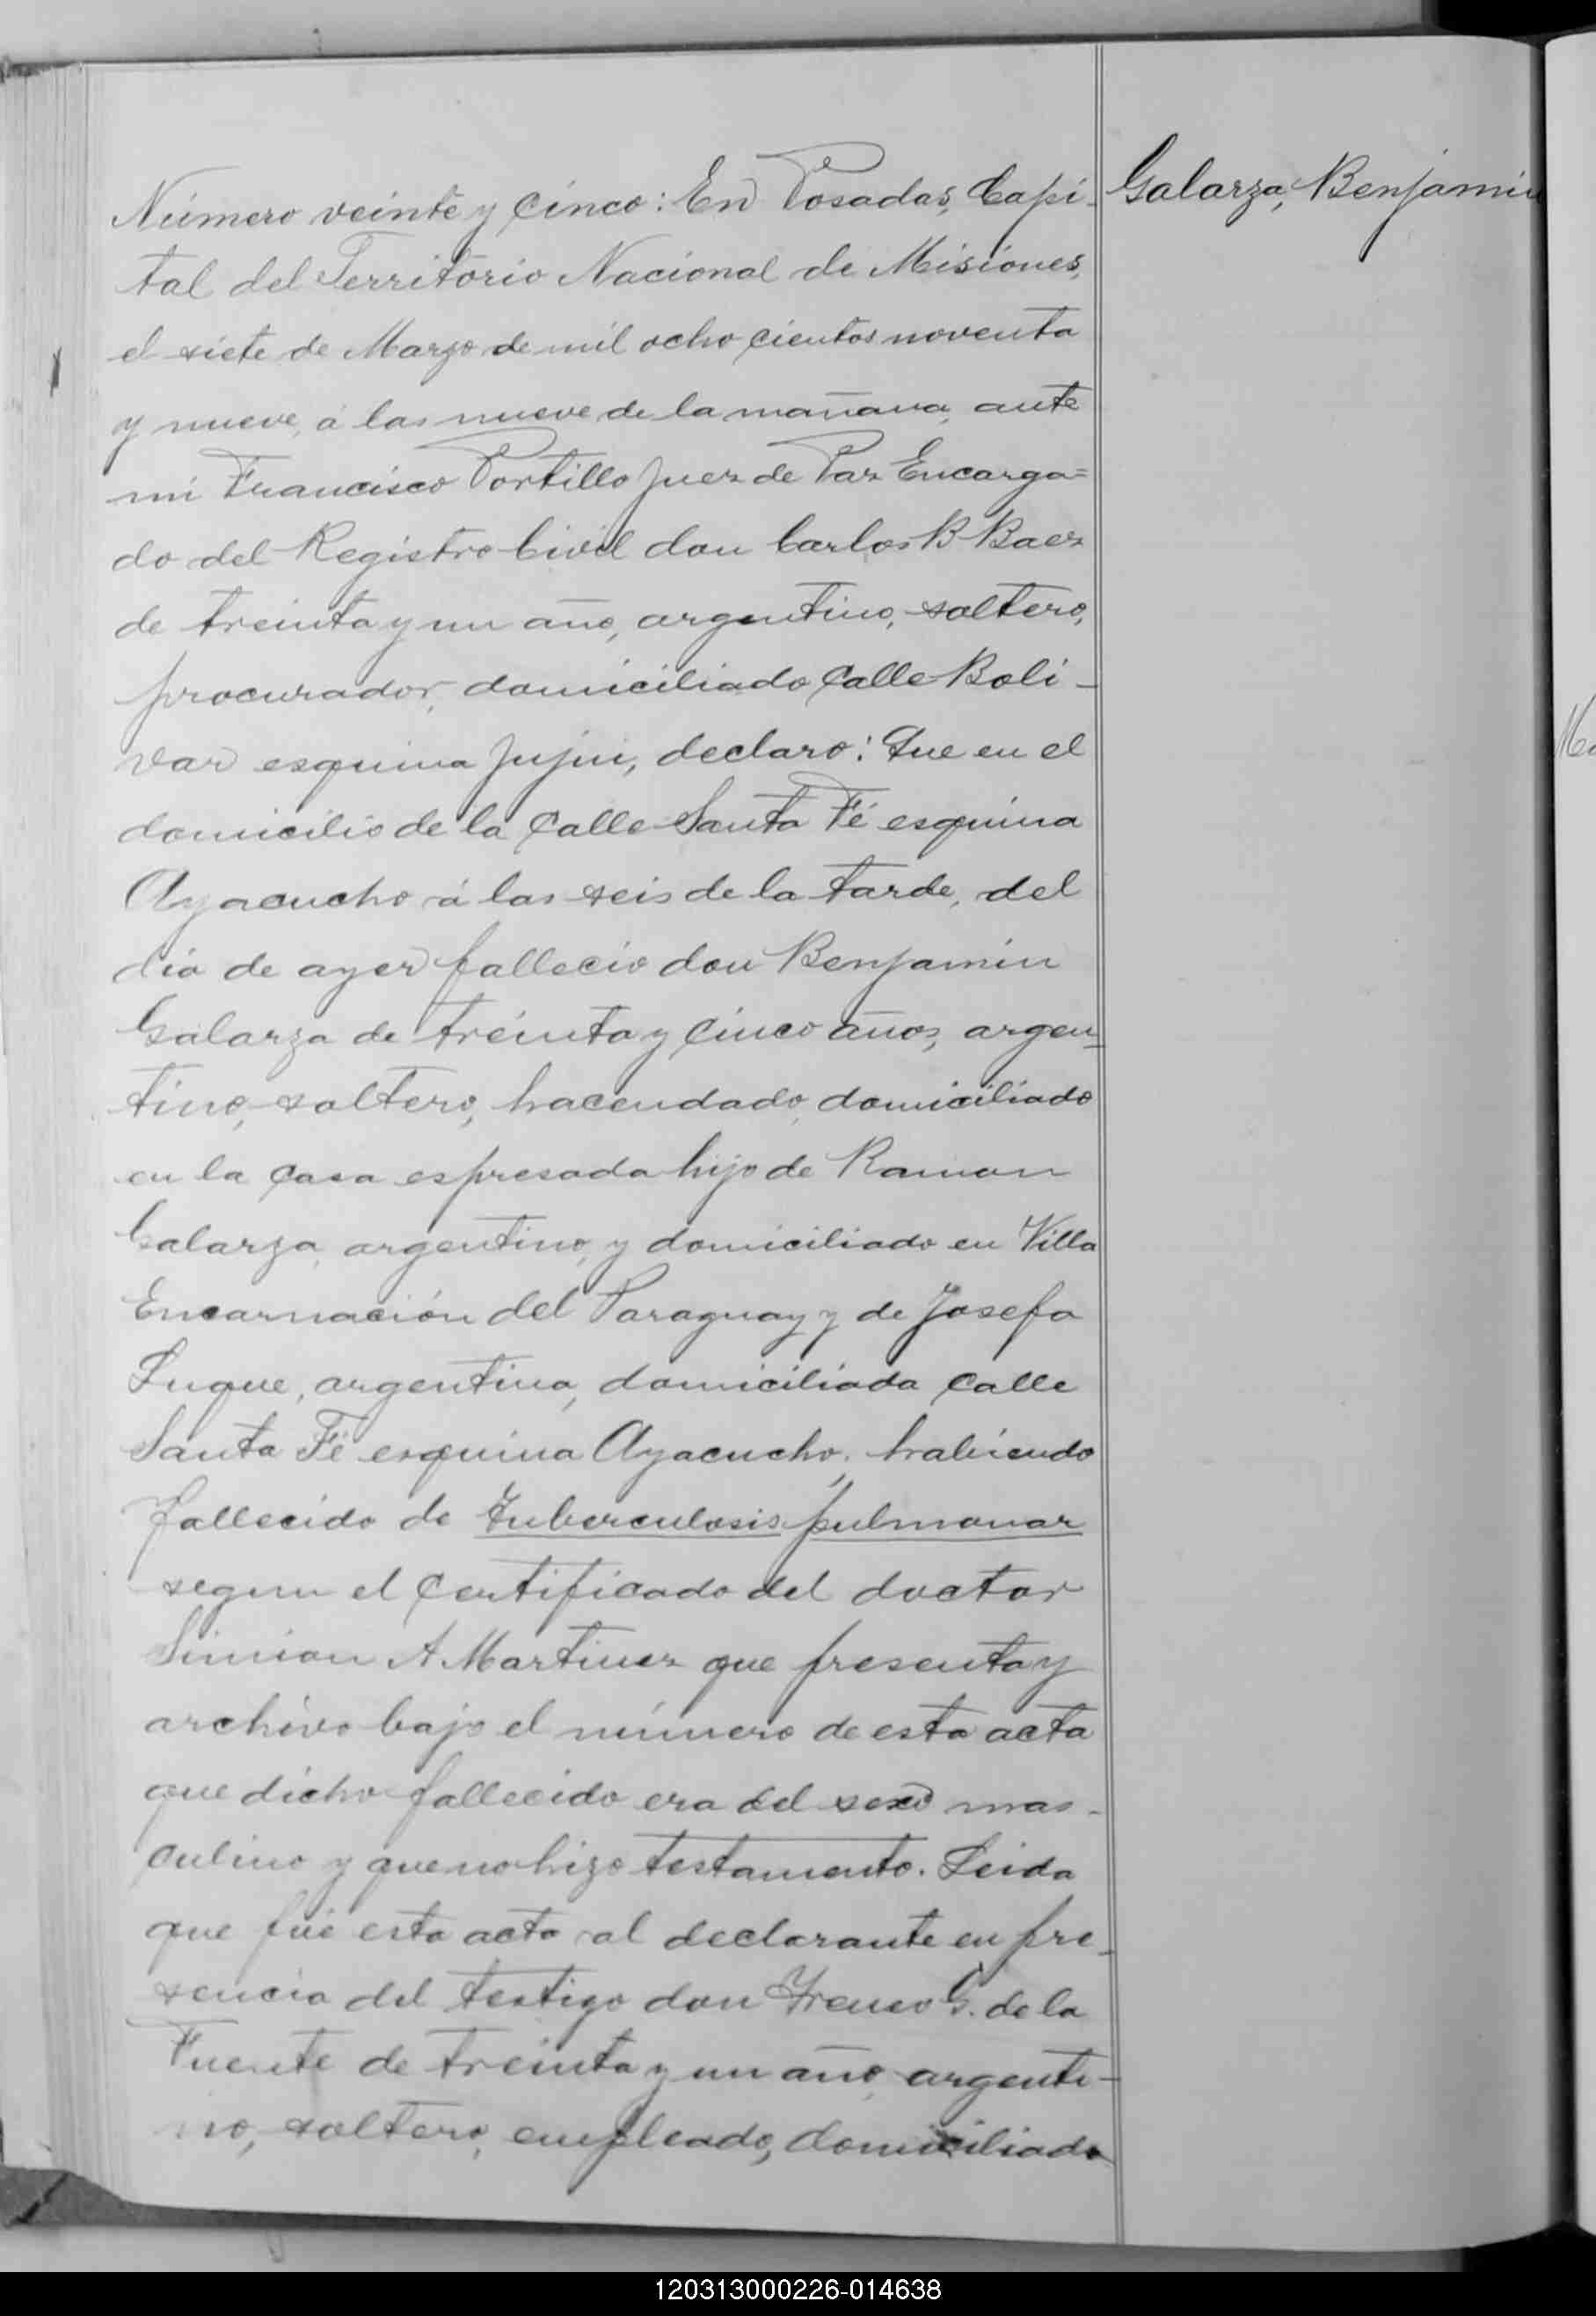 Galarza, Benjamin
Número veinte y cinco: En Posadas, Capi-
tal del Territorio Nacional de Misiones,
el siete de Marzo de mil ocho cientos noventa
y nueve, á las nueve de la mañana, ante
mi Francisco Portillo Juez de Paz Encarga=
do del Registro Civil don Carlos B Baez
de treinta y un año, argentino, soltero,
procurador, domiciliado calle Boli-
var esquina Jujui, declaro: Que en el
domicilio de la calle Santa Fé esquina
Ayacucho á las seis de la tarde, del
dia de ayer fallecio don Benjamin
Galarza de treinta y cinco años, argen-
tino, soltero, hacendado, domiciliado
en la casa espresada hijo de Ramon
Galarza, argentino, y domiciliado en Villa
Encarnación del Paraguay y de Josefa
Luque, argentina, domiciliada calle
Santa Fé esquina Ayacucho; habiendo
fallecido de Tuberculosis pulmonar
segun el certificado del doctor
Simion A. Martinez que presenta y
archivo bajo el número de esta acta
que dicho fallecido era del sexo mas-
culino y que no hizo testamento. Leida
que fué esta acta al declarante en pre-
sencia del testigo don Ireneo G. de la
Fuente de treinta y un año, argenti-
no, soltero, empleado, domiciliado
120313000226-014638